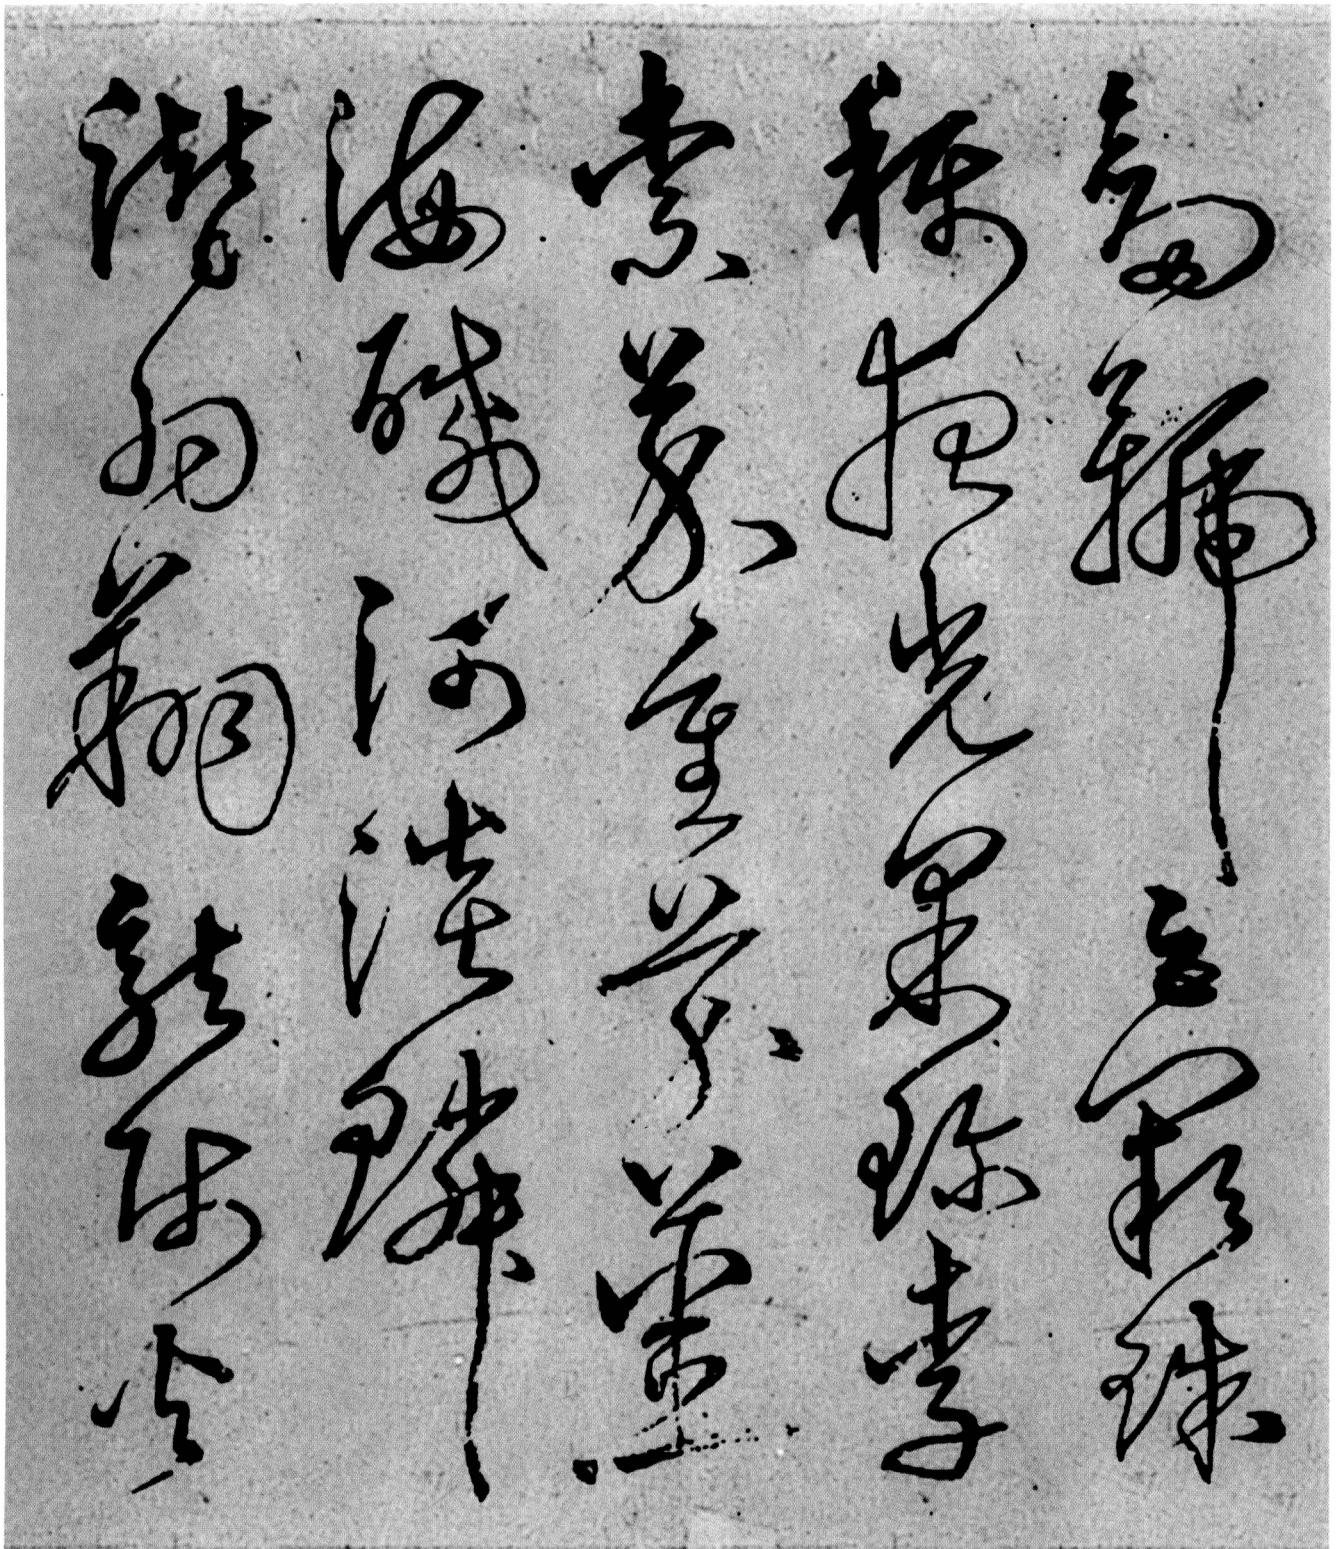 劍號巨闕珠
稱夜光果珍李
柰菜重芥薑
海鹹河淡鱗
潛羽翔龍師火